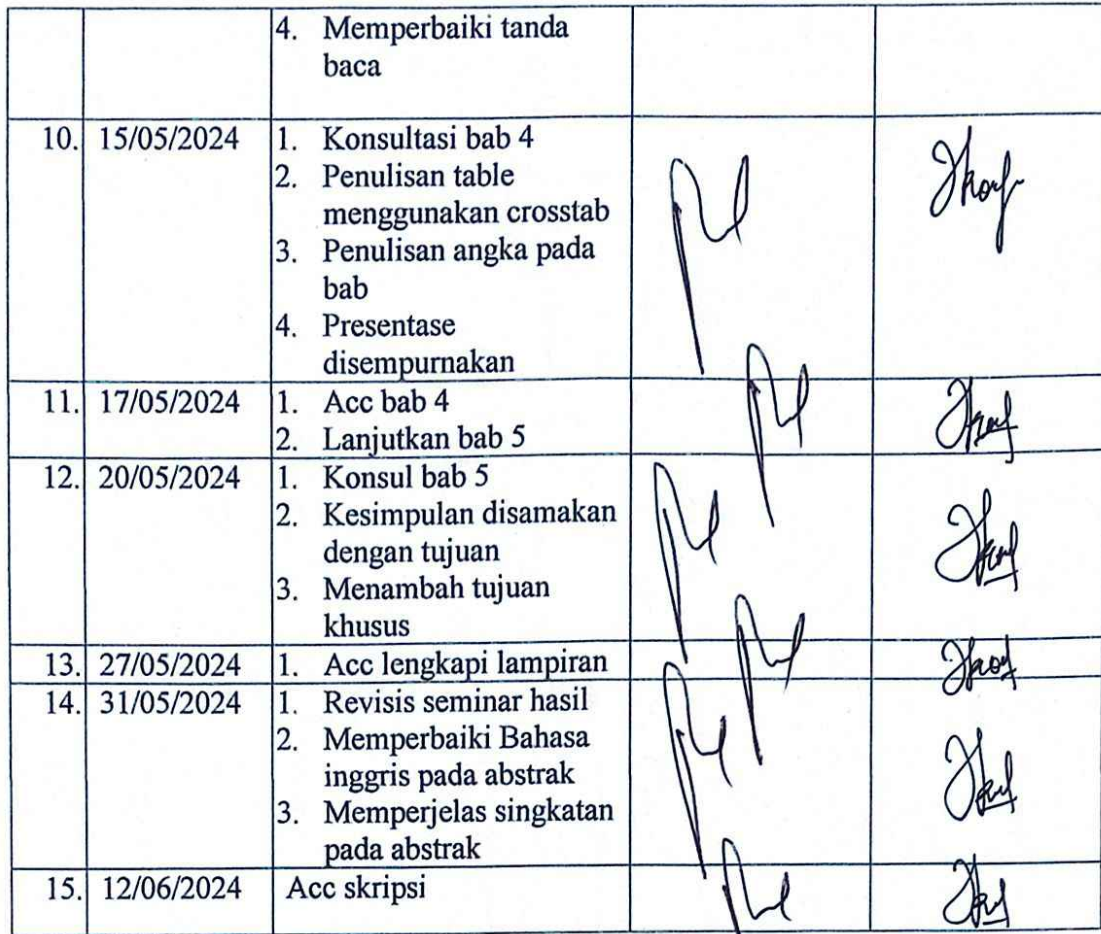 4. Memperbaiki tanda
baca
10. 15/05/2024 1. Konsultasi bab 4
2. Penulisan table
menggunakan crosstab
3. Penulisan angka pada
bab
4. Presentase
disempurnakan
11. 17/05/2024 1. Acc bab 4
2. Lanjutkan bab 5
12. 20/05/2024 1. Konsul bab 5
2. Kesimpulan disamakan
dengan tujuan
3. Menambah tujuan
khusus
13. 27/05/2024 1. Acc lengkapi lampiran
14. 31/05/2024 1. Revisis seminar hasil
2. Memperbaiki Bahasa
inggris pada abstrak
3. Memperjelas singkatan
pada abstrak
15. 12/06/2024 Acc skripsi